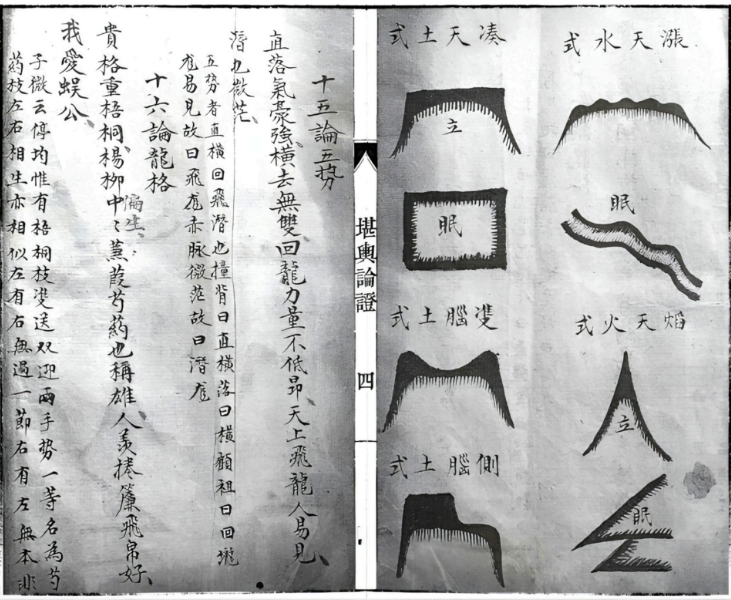 漲天水式
眠
焰天火式
立
眠
湊天土式
立
眠
雙腦土式
側腦土式
堪輿論證
四
十五論五势
直落氣豪強橫去無雙回龍力量不低昂天上飛龍人易見
潛龙微茫
五势者直橫回飛潛也撞背曰直橫落曰橫顧祖曰回
龙易見故曰飛龙赤脉微茫故曰潛龙
十六論龍格
貴格重梧桐楊柳中〻蒹葭芍葯也稱雄人羡捲簾飛帛好
偏生
我愛蜈公
子微云停均惟有梧桐枝双送双迎兩手势一等名為芍
葯枝左右相生亦相似左有右無過一節右有左無本非